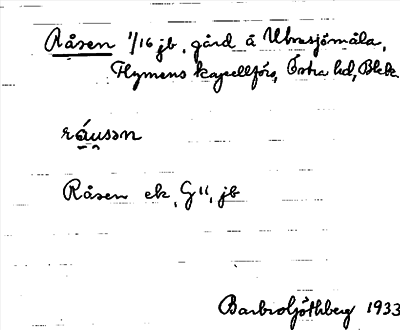 Råsen 1/16 jb, gård å Ubbasjömåla,
Flymens kapellförs, Östra hd, Blek.
råusən
Råsen ek, G11, jb
1933